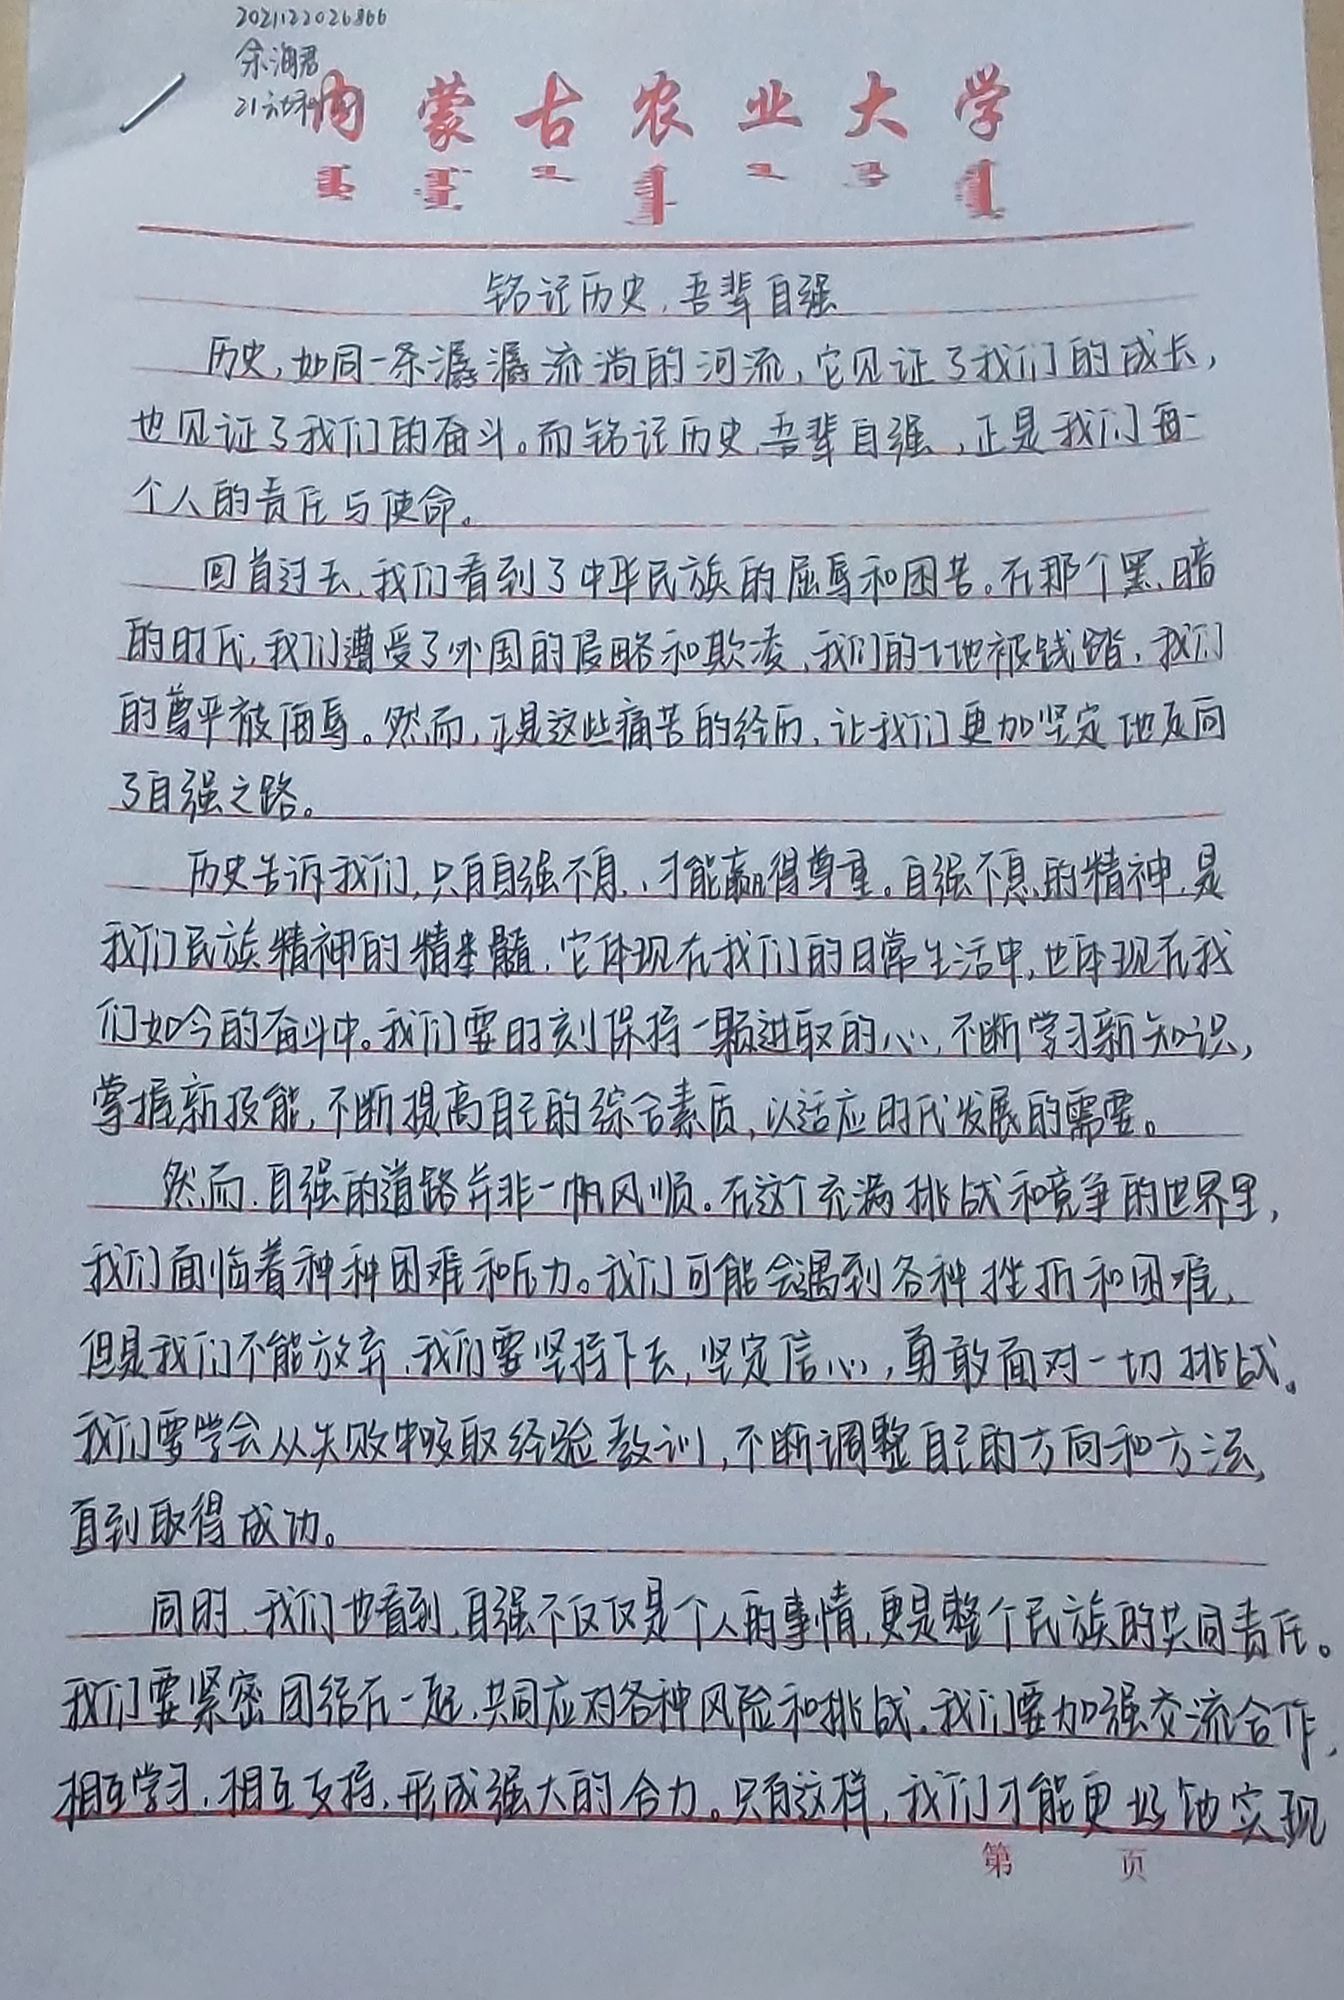 202122026866
余海君
内蒙古农业大学
铭记历史,吾辈自强
历史,如同一条潺潺流淌的河流,它见证了我们的成长,
也见证了我们的奋斗。而铭记历史,吾辈自强,正是我们每一
个人的责任与使命。
回首过去,我们看到了中华民族的屈辱和困苦。在那个黑暗
的时代,我们遭受了外国的侵略和欺凌,我们的土地被践踏,我们
的尊严被侮辱。然而,正是这些痛苦的经历,让我们更加坚定地走向
了自强之路。
历史告诉我们,只有自强不息,才能赢得尊重。自强不息的精神,是
我们民族精神的精髓,它体现在我们的日常生活中,也体现在我
们如今的奋斗中。我们要时刻保持一颗进取的心,不断学习新知识,
掌握新技能,不断提高自己的综合素质,以适应时代发展的需要。
然而,自强的道路并非一帆风顺。在这个充满挑战和竞争的世界里,
我们面临着种种困难和压力。我们可能会遇到各种挫折和困难,
但是我们不能放弃,我们要坚持下去,坚定信心,勇敢面对一切挑战。
我们要学会从失败中吸取经验教训,不断调整自己的方向和方法,
直到取得成功。
同时,我们也看到,自强不仅仅是个人的事情,更是整个民族的共同责任。
我们要紧密团结在一起,共同应对各种风险和挑战。我们要加强交流合作,
相互学习,相互支持,形成强大的合力。只有这样,我们才能更好地实现
第 页